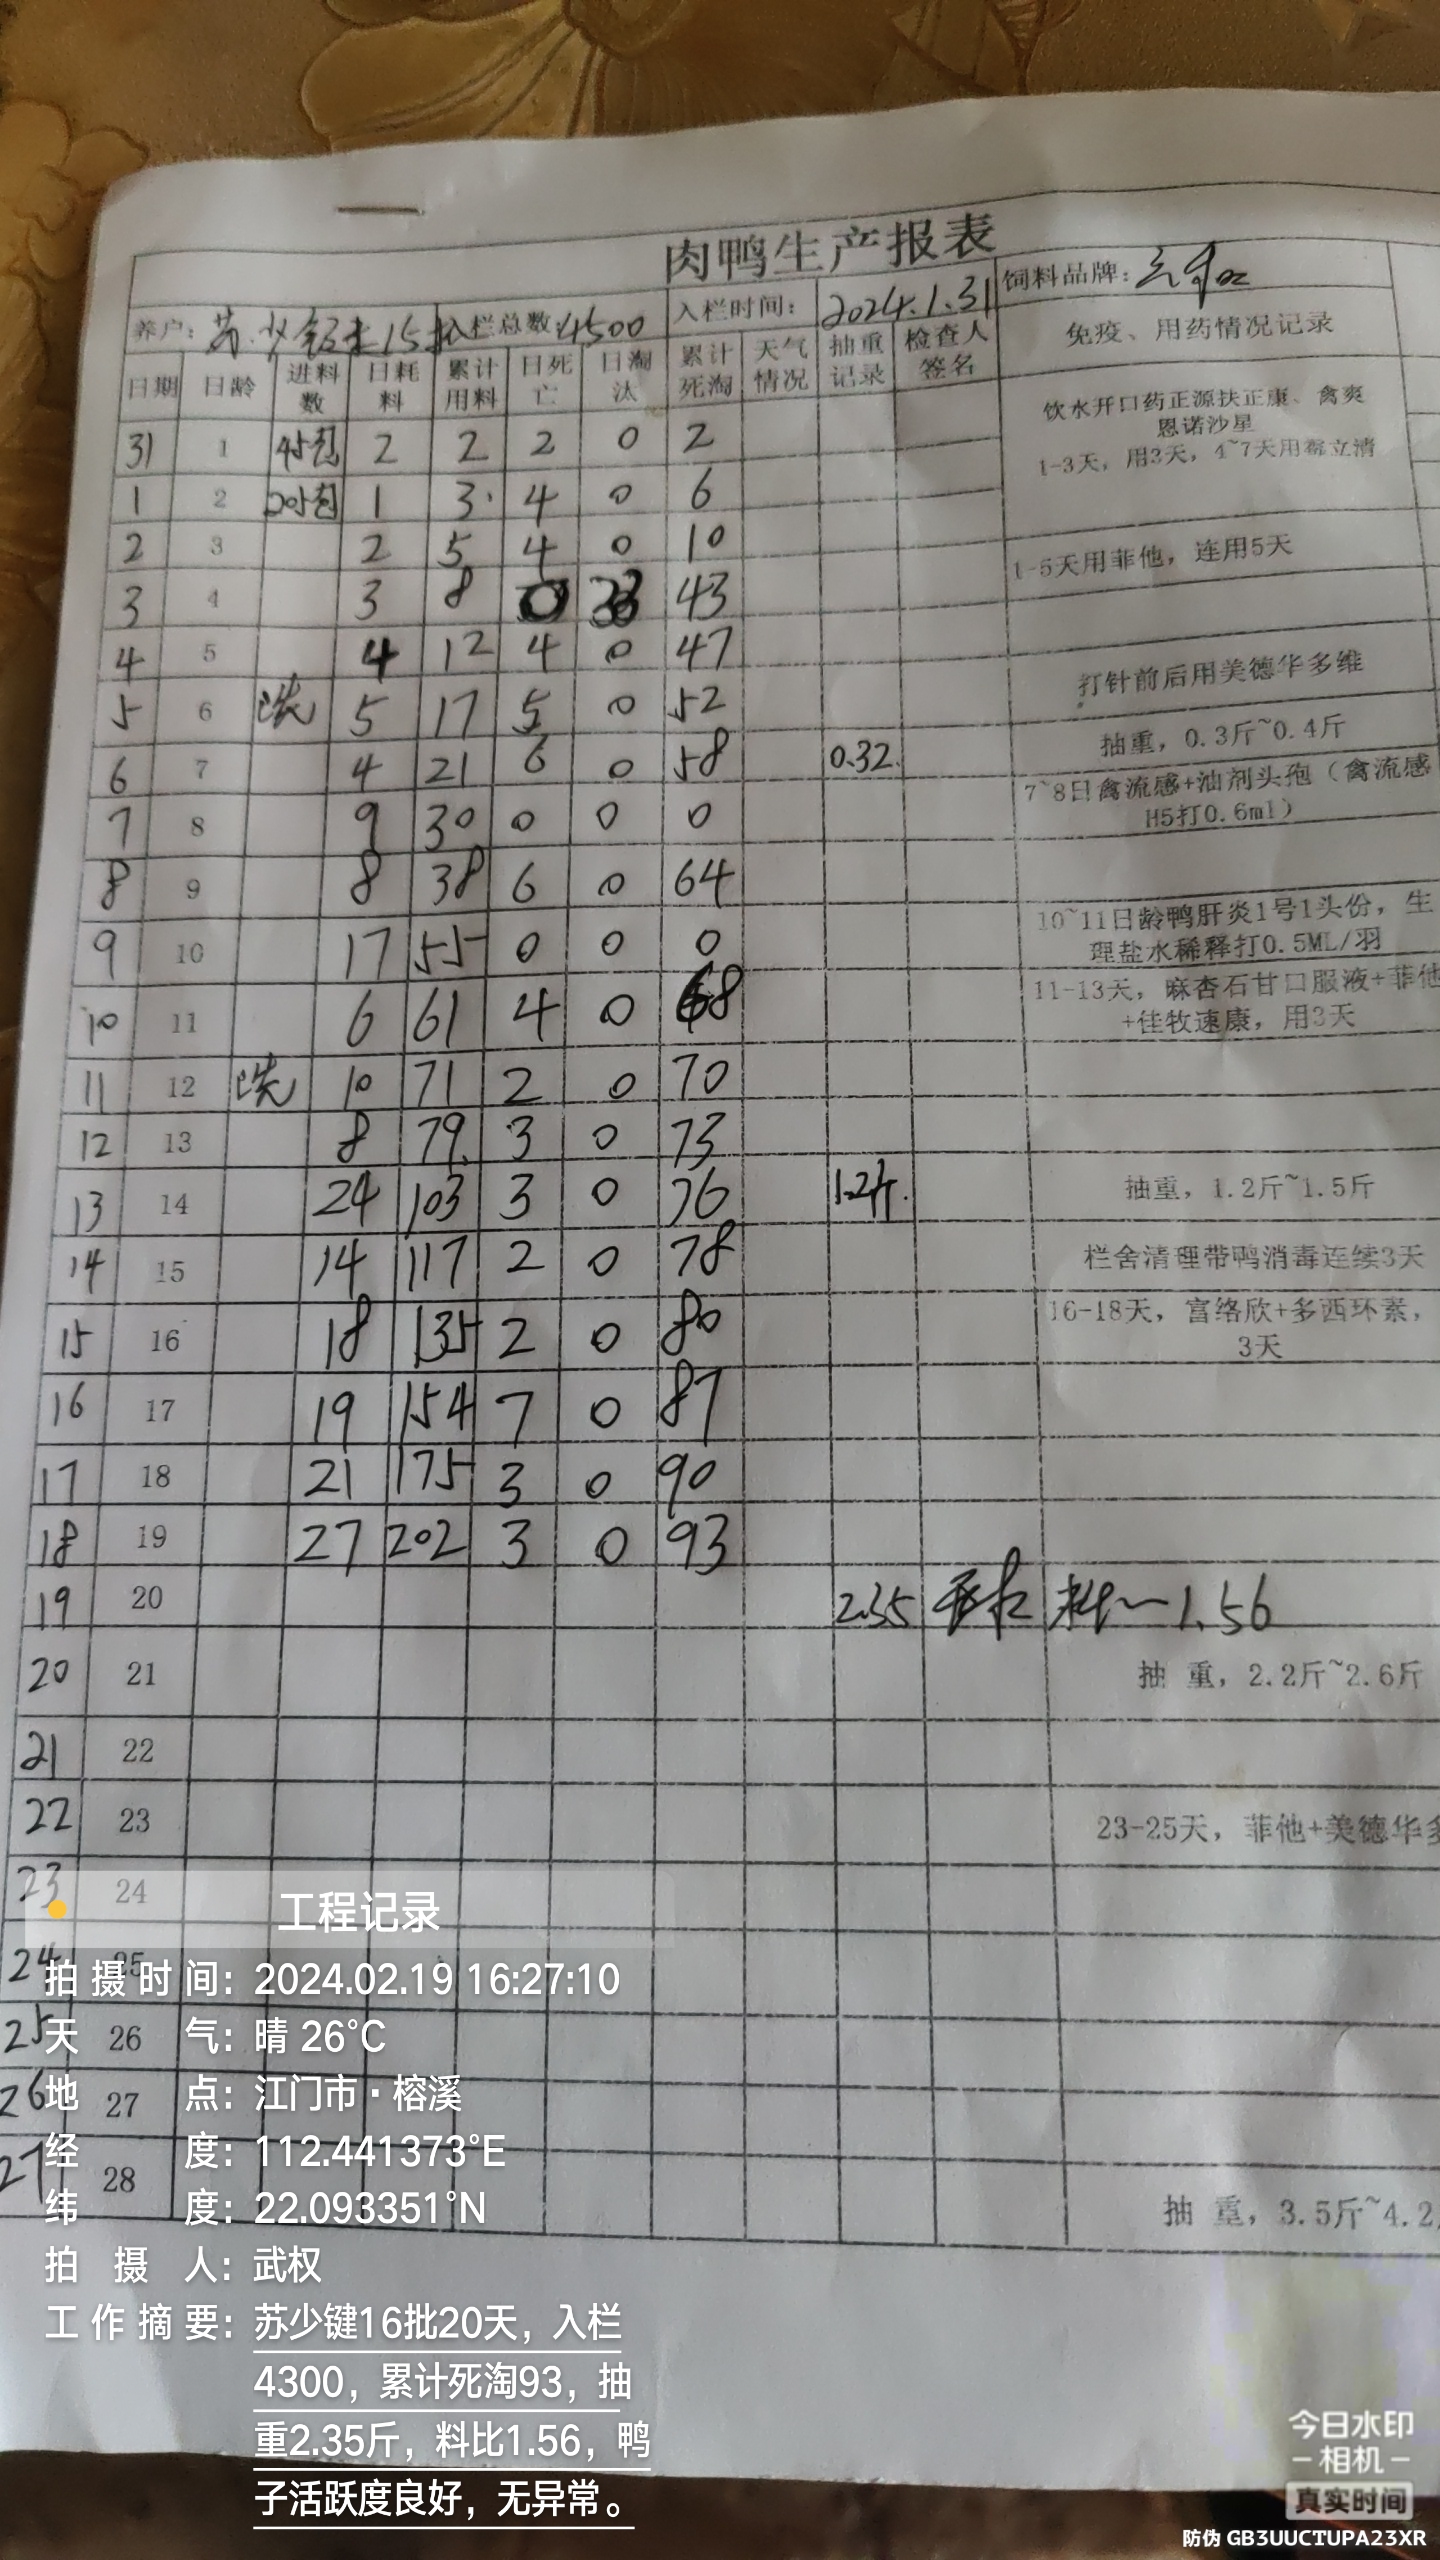 肉鸭生产报表
养户: 苏少 15 入栏总数:4500 入栏时间: 2024.1.31 饲料品牌:
日期 日龄 进料数 日耗料 累计用料 日死亡 日淘汰 累计死淘 天气情况 抽重记录 检查人签名 免疫、用药情况记录
31 1 45包 2 2 2 0 2
饮水开口药正源扶正康、禽爽
恩诺沙星
1-3天, 用3天, 4~7天用霉立清
1 2 205包 1 3 4 0 6
2 3 2 5 4 0 10 1-5天用菲他, 连用5天
3 4 3 8 0 33 43
4 5 4 12 4 0 47
5 6 5 17 5 0 52 打针前后用美德华多维
6 7 4 21 6 0 58 0.32 抽重, 0.3斤~0.4斤
7 8 9 30 0 0 0 7~8日禽流感+油剂头孢（禽流感
H5打0.6ml）
8 9 8 38 6 0 64
9 10 17 55 0 0 0 10~11日龄鸭肝炎1号1头份, 生
理盐水稀释打0.5ML/羽
10 11 6 61 4 0 68 11-13天, 麻杏石甘口服液+菲他
+佳牧速康, 用3天
11 12 10 71 2 0 70
12 13 8 79 3 0 73
13 14 24 103 3 0 76 1.2斤. 抽重, 1.2斤~1.5斤
14 15 14 117 2 0 78 栏舍清理带鸭消毒连续3天
15 16 18 135 2 0 80 16-18天, 富络欣+多西环素,
3天
16 17 19 154 7 0 87
17 18 21 175 3 0 90
18 19 27 202 3 0 93
19 20 2.35 料 1.56
20 21 抽 重, 2.2斤~2.6斤
21 22
22 23 23-25天, 菲他+美德华多
23 24
24 25
25 26
26 27
27 28 抽 重, 3.5斤~4.2
工程记录
拍摄时间: 2024.02.19 16:27:10
天气: 晴 26°C
地点: 江门市·榕溪
经度: 112.441373°E
纬度: 22.093351°N
拍摄人: 武权
工作摘要: 苏少键16批20天，入栏
4300，累计死淘93，抽
重2.35斤，料比1.56，鸭
子活跃度良好，无异常。
今日水印
-相机-
真实时间
防伪 GB3UUCTUPA23XR